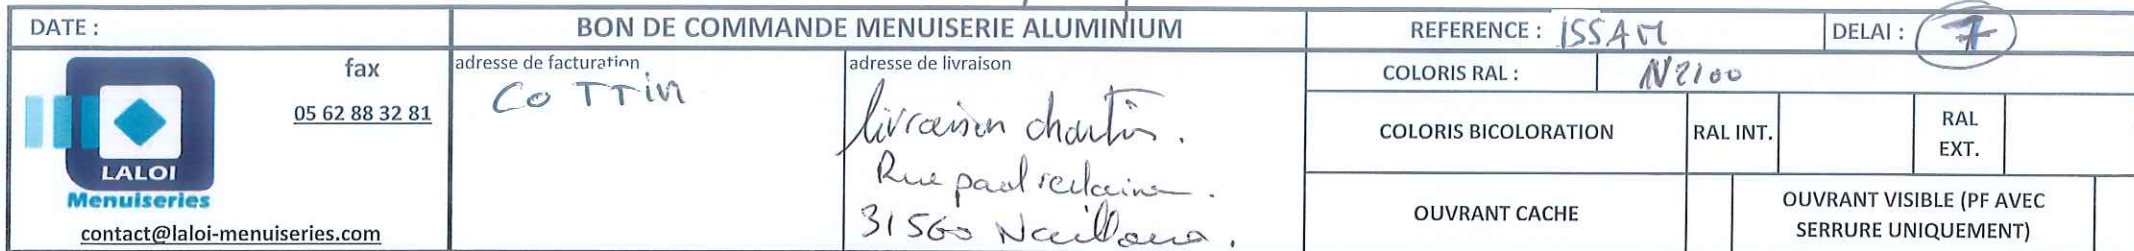 DATE :
BON DE COMMANDE MENUISERIE ALUMINIUM
REFERENCE : ISSAM
DELAI : 7
fax
05 62 88 32 81
LALOI
Menuiseries
contact@laloi-menuiseries.com
adresse de facturation
COTTIN
adresse de livraison
livraison
Rue paul
31560 Nailloux.
COLORIS RAL : N2100
COLORIS BICOLORATION
RAL INT.
RAL
EXT.
OUVRANT CACHE
OUVRANT VISIBLE (PF AVEC
SERRURE UNIQUEMENT)